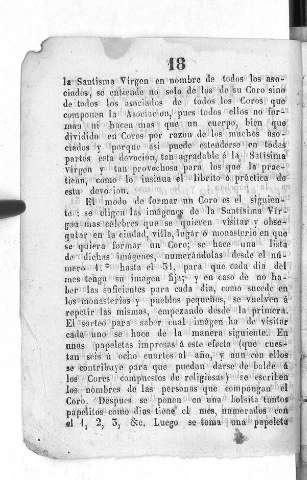 18
la Santisma Virgen en nombre de todos los aso-
ciados, se entiende no solo de los de su Coro sino
de todos los asociados de todos los Coros que
componen la Asociacion, pues todos ellos no for-
man ni hacen mas que un cuerpo, bien que
dividido en Coros por razon de los muchos aso-
ciados y porque asi puede estenderse en todas
partes esta devocion, tan agradable á la Satisima
Virgen y tan provechosa para los que la prac-
tican, como lo indica el librito ó práctica de
esta devocion.
El modo de formar un Coro es el siguien-
te: se eligen las imágenes de la Santisima Vir-
gen mas celebres que se quieren visitar y obse-
quiar en la ciudad, villa, lugar ó monasterio en que
se quiera formar un Coro; se hace una lista
de dichas imágenes, numerándolas desde el nú-
mero 1.º hasta el 31, para que cada dia del
mes tenga su imágen fija; y en caso de no ha-
ber las suficientes para cada dia, como sucede en
los monasterios y pueblos pequeños, se vuelven á
repetir las mismas, empezando desde la primera.
El sorteo para saber cual imágen ha de visitar
cada uno se hace de la manera siguiente. En
unas papeletas impresas á este efecto (que cues-
tan seis ú ocho cuartos al año, y aun con ellos
se contribuye para que puedan darse de balde á
los Cores compuestos de religiosas) se escriben
los nombres de las personas que compongan el
Coro. Despues se ponen en una bolsita tantos
papelitos como dias tiene el mes, numerados con
el 1, 2, 3, &c. Luego se toma una papeleta